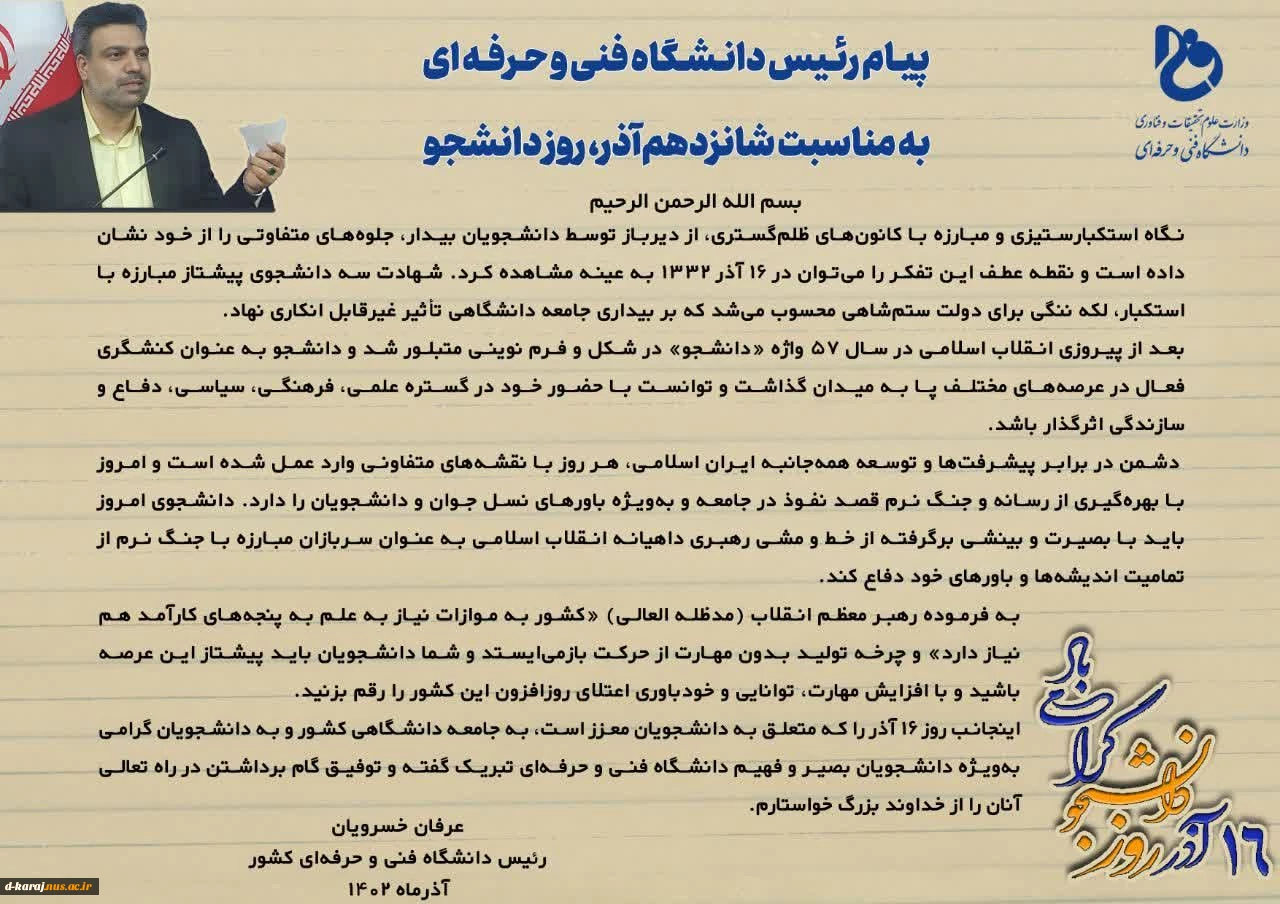 وزارت علوم تحقیقات و فناوری
دانشگاه فنی و حرفه‌ای
پیام رئیس دانشگاه فنی و حرفه ای
به مناسبت شانزدهم آذر، روز دانشجو
بسم الله الرحمن الرحیم
نگاه استکبارستیزی و مبارزه با کانون‌های ظلم‌گستری، از دیرباز توسط دانشجویان بیدار، جلوه‌های متفاوتی را از خود نشان
داده است و نقطه عطف این تفکر را می‌توان در ۱۶ آذر ۱۳۳۲ به عینه مشاهده کرد. شهادت سه دانشجوی پیشتاز مبارزه با
استکبار، لکه ننگی برای دولت ستم‌شاهی محسوب می‌شد که بر بیداری جامعه دانشگاهی تأثیر غیرقابل انکاری نهاد.
بعد از پیروزی انقلاب اسلامی در سال ۵۷ واژه «دانشجو» در شکل و فرم نوینی متبلور شد و دانشجو به عنوان کنشگری
فعال در عرصه‌های مختلف پا به میدان گذاشت و توانست با حضور خود در گستره علمی، فرهنگی، سیاسی، دفاع و
سازندگی اثرگذار باشد.
دشمن در برابر پیشرفت‌ها و توسعه همه‌جانبه ایران اسلامی، هر روز با نقشه‌های متفاوتی وارد عمل شده است و امروز
با بهره‌گیری از رسانه و جنگ نرم قصد نفوذ در جامعه و به‌ویژه باورهای نسل جوان و دانشجویان را دارد. دانشجوی امروز
باید با بصیرت و بینشی برگرفته از خط و مشی رهبری داهیانه انقلاب اسلامی به عنوان سربازان مبارزه با جنگ نرم از
تمامیت اندیشه‌ها و باورهای خود دفاع کند.
به فرموده رهبر معظم انقلاب (مدظله العالی) «کشور به موازات نیاز به علم به پنجه‌های کارآمد هم
نیاز دارد» و چرخه تولید بدون مهارت از حرکت بازمی‌ایستد و شما دانشجویان باید پیشتاز این عرصه
باشید و با افزایش مهارت، توانایی و خودباوری اعتلای روزافزون این کشور را رقم بزنید.
اینجانب روز ۱۶ آذر را که متعلق به دانشجویان معزز است، به جامعه دانشگاهی کشور و به دانشجویان گرامی
به‌ویژه دانشجویان بصیر و فهیم دانشگاه فنی و حرفه‌ای تبریک گفته و توفیق گام برداشتن در راه تعالی
آنان را از خداوند بزرگ خواستارم.
عرفان خسرویان
رئیس دانشگاه فنی و حرفه‌ای کشور
آذرماه ۱۴۰۲
۱۶ آذر روز
دانشجو
گرامی
باد
d-karaj.nus.ac.ir